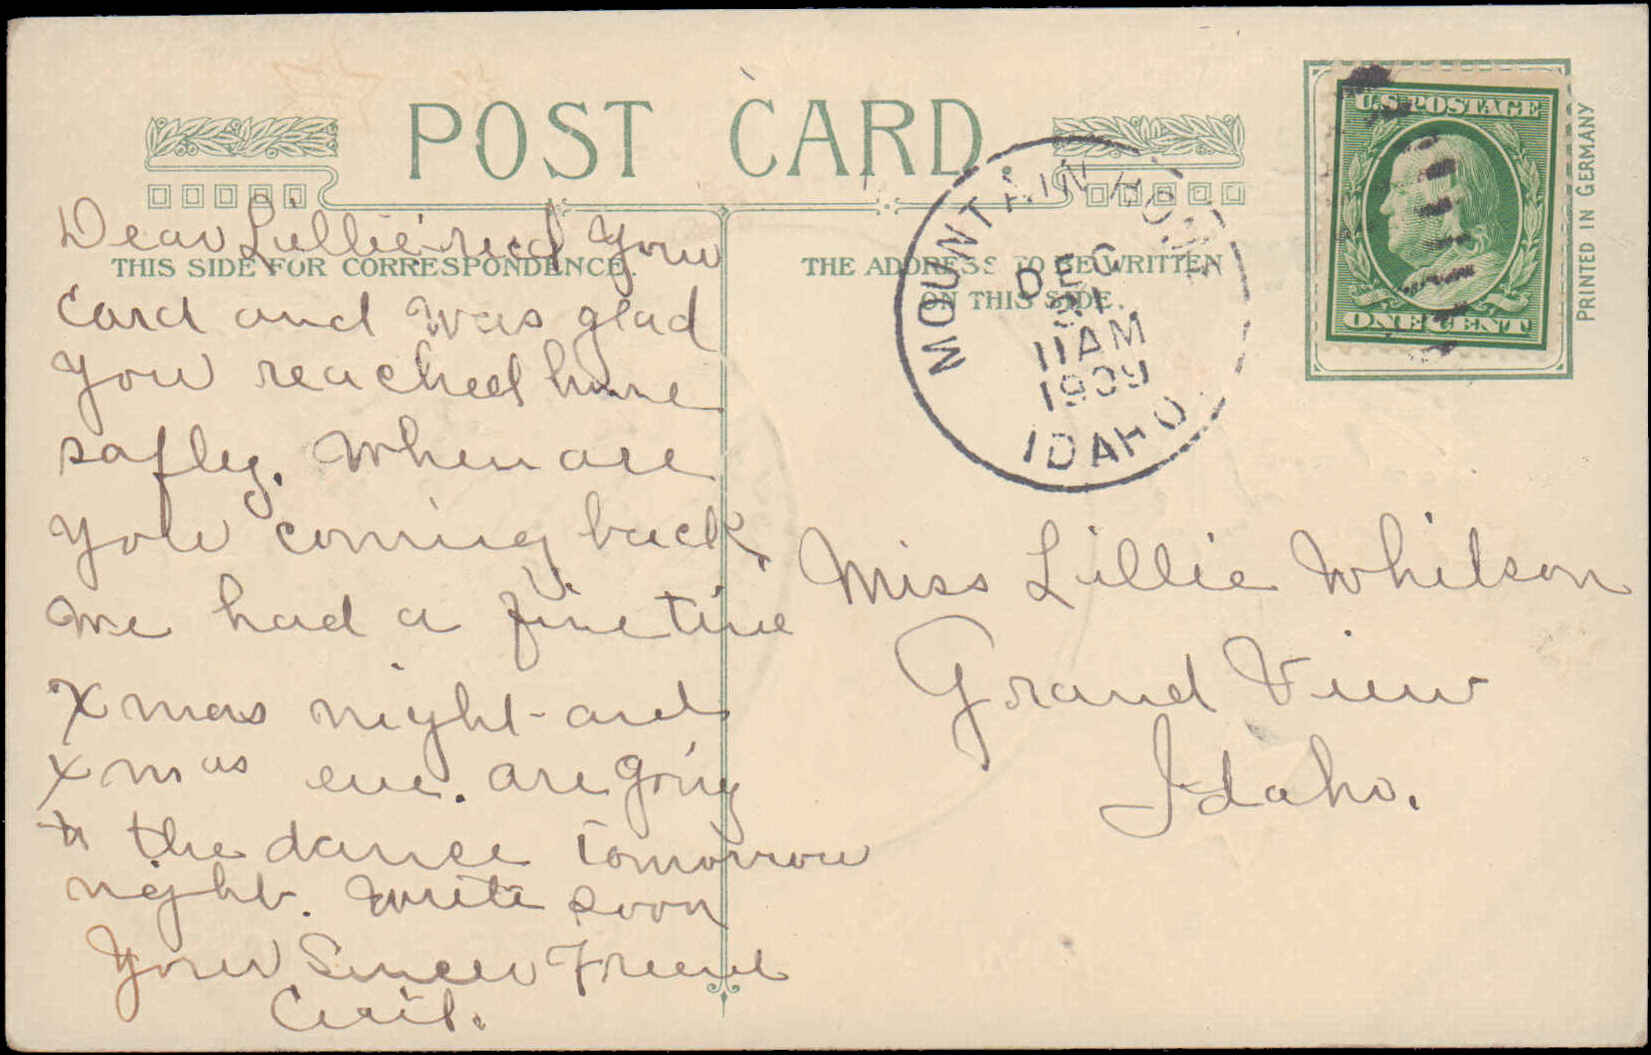 POST CARD
U.S. POSTAGE
ONE CENT
PRINTED IN GERMANY
THIS SIDE FOR CORRESPONDENCE.
THE ADDRESS TO BE WRITTEN
ON THIS SIDE.
MOUNTAIN HOME
DEC
31
11AM
1909
IDAHO
Dear Lillie recd your
card and was glad
you reached home
safley. When are
you coming back
we had a fine time
Xmas night and
Xmas eve. are going
to the dance tomorrow
night. write soon
Your Sincer Friend
Cecil.
Miss Lillie Whilson
Grand View
Idaho.